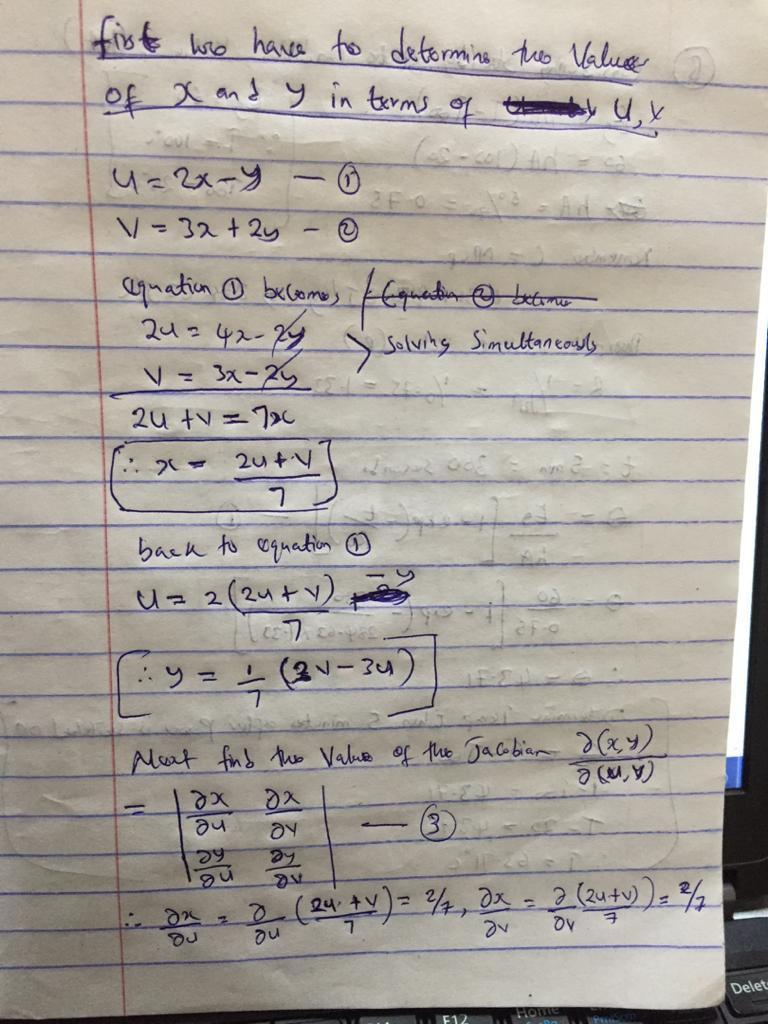 first we have to determine the Values
of x and y in terms of u, v
u = 2x - y — ①
V = 3x + 2y - ②
equation ① becomes / Equation ② become
2u = 4x - 2y > Solving Simultaneously
V = 3x - 2y
2u + v = 7x
∴ x = (2u + v)/7
back to equation ①
u = 2(2u + v)/7 - y
∴ y = 1/7 (2v - 3u)
Next find the Value of the Jacobian ∂(x, y)/∂(u, v)
= | ∂x/∂u ∂x/∂v | — ③
| ∂y/∂u ∂y/∂v |
∴ ∂x/∂u = ∂/∂u (2u + v/7) = 2/7, ∂x/∂v = ∂/∂v (2u+v/7) = 2/7
F12
Home
Delete